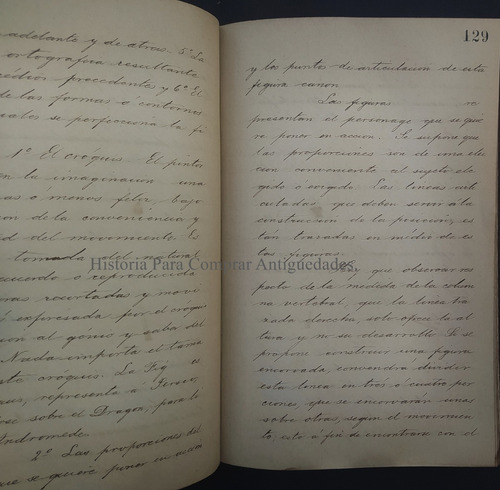 adelante y de atras. 5º La
ortografía resultante
procedentes y 6º El
de las formas ó contornos
se perfecciona la fi
1º El cróquis. El pintor
la imaginacion una
ó menos feliz, bajo
de la conveniencia y
del movimiento. Es
tomada del natural,
ó reproducida
recortadas y movi
por el cróquis
al génio y saber del
Nada importa el tama
cróquis. La Fig es
representa á Perseo,
sobre el Dragon, para li
Andromede.
2º Las proporciones del
que se quiere poner en accion
129
y los puntos de articulación de esta
figura canon.
Las figuras re
presentan el personage que se quie
re poner en acción. Se supone que
las proporciónes son de una elec
cion conveniente al sujeto ele
gido ó exigido. Las lineas arti
culadas, que deben servir á la
construccion de la posición, es
tán trazadas en médio de es
tas figuras.
Hay que observar res
pecto de la medida de la colum
na vertebral, que la linea tra
zada derecha, solo ofrece la al
tura y no su desarrollo. Si se
propone construir una figura
encorvada, convendrá dividir
esta linea en trés ó cuatro por
ciones, que se encorvarán unas
sobre otras, segun el movimien
to, esto á fin de encontrarse con el
Historia Para Comprar Antiguedades